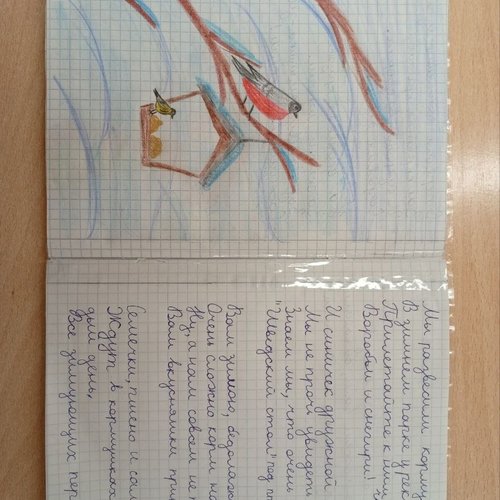 Мы развесили корму
В зимнем парке у ре
Прилетайте к ним
Воробьи и снегири!
И синичек дружной
Мы не прочь увидет
Знаем мы, что очень
"Шведский стол" под пр
Вам зимою, бедолаж
Очень сложно корм на
Ну, а нам совсем не т
Вам вкусняшки при
Семечки, пшено и сал
Ждут в кормушках
дый день,
Все зимующих пер